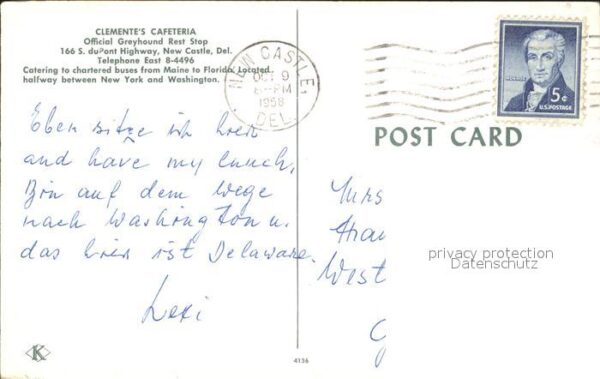 CLEMENTE'S CAFETERIA
Official Greyhound Rest Stop
166 S. duPont Highway, New Castle, Del.
Telephone East 8-4496
Catering to chartered buses from Maine to Florida. Located
halfway between New York and Washington.
NEW CASTLE
OCT 9
PM
1958
DEL.
MONROE
5¢
U.S. POSTAGE
POST CARD
Eben sitze ich hier
and have my lunch,
Bin auf dem Wege
nach Washington u.
das hier ist Delaware.
Mrs
West
privacy protection
Datenschutz
K
4136